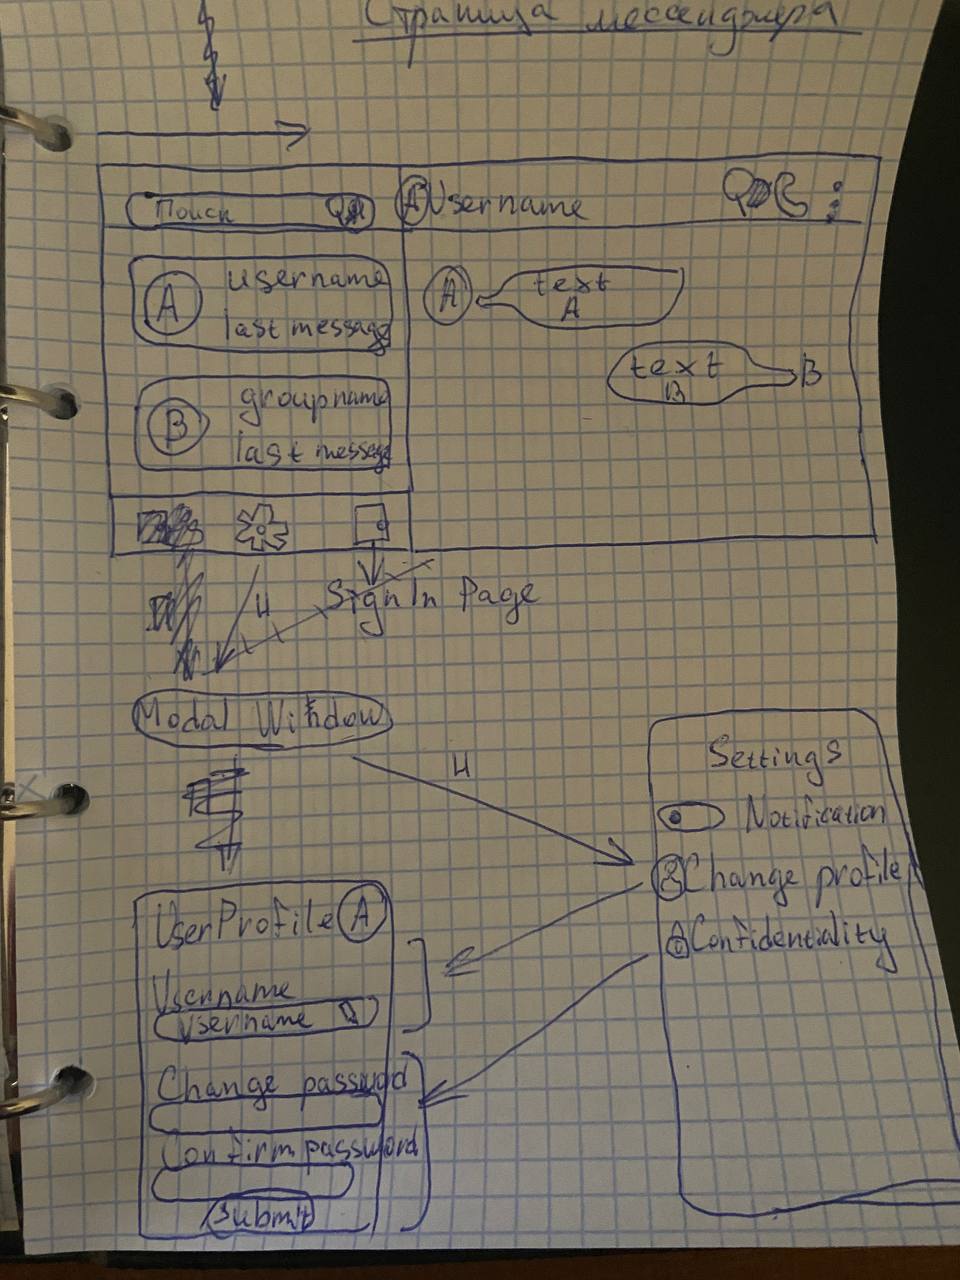 Страница мессенджера
Поиск
A Username
A
username
last message
A
text
A
text
B
B
B
groupname
last message
Sign In Page
Modal Window
Settings
Notification
Change profile
Confidentiality
UserProfile A
Username
username
Change password
Confirm password
Submit